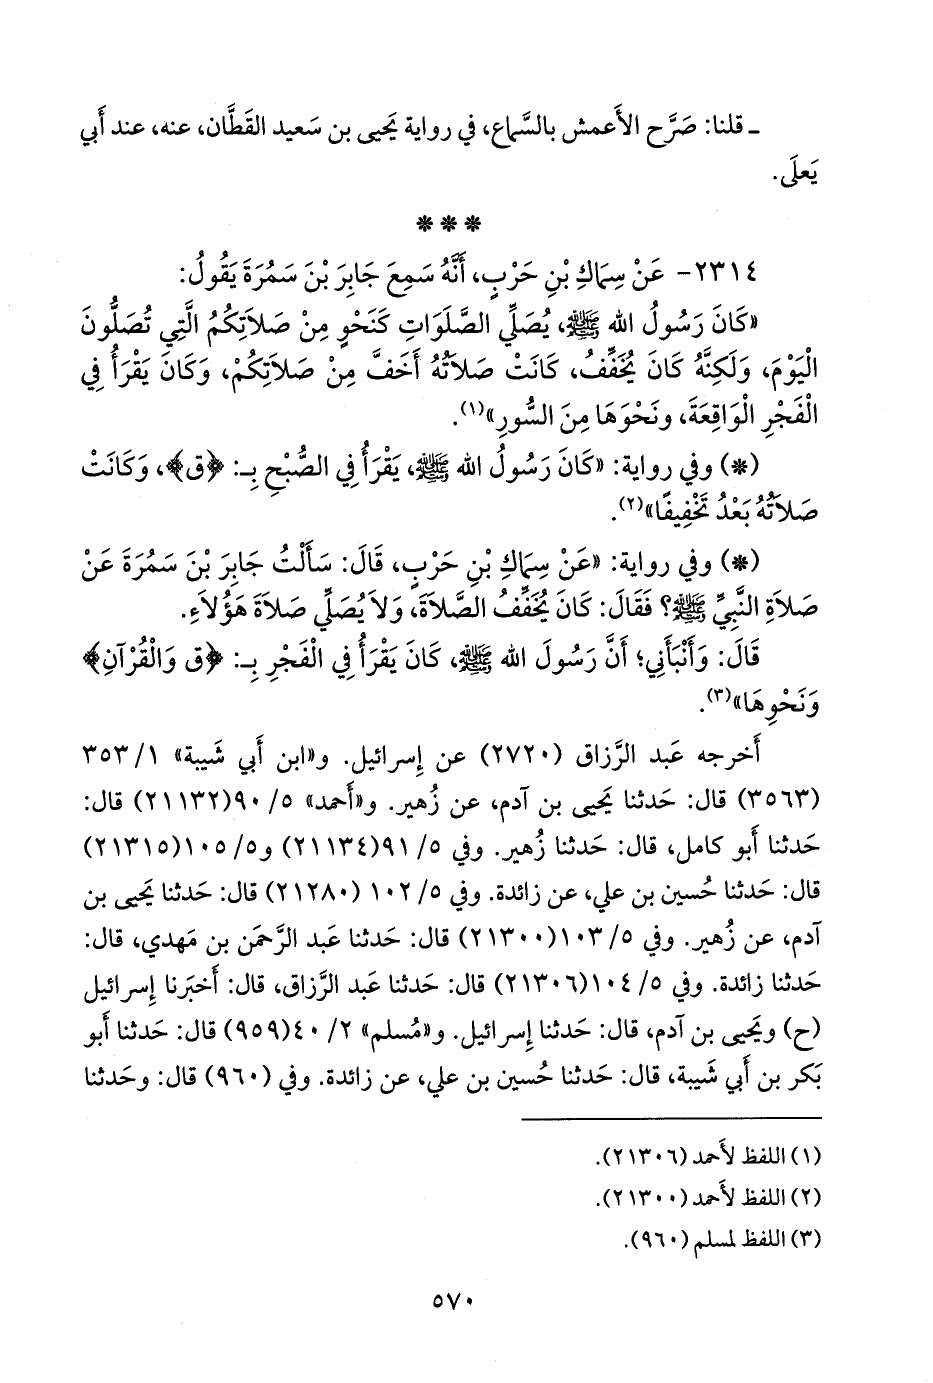 ـ قلنا: صَرَّح الأَعمش بالسَّماع، في رواية يَحيى بن سَعيد القَطَّان، عنه، عند أَبي
يَعلَى.
* * *
٢٣١٤- عَنْ سِمَاكِ بْنِ حَرْبٍ، أَنَّهُ سَمِعَ جَابِرَ بْنَ سَمُرَةَ يَقُولُ:
«كَانَ رَسُولُ الله ﷺ، يُصَلِّي الصَّلَوَاتِ كَنَحْوٍ مِنْ صَلاَتِكُمُ الَّتِي تُصَلُّونَ
الْيَوْمَ، وَلَكِنَّهُ كَانَ يُخَفِّفُ، كَانَتْ صَلاَتُهُ أَخَفَّ مِنْ صَلاَتِكُمْ، وَكَانَ يَقْرَأُ فِي
الْفَجْرِ الْوَاقِعَةَ، ونَحْوَهَا مِنَ السُّورِ»(١).
(*) وفي رواية: «كَانَ رَسُولُ الله ﷺ، يَقْرَأُ فِي الصُّبْحِ بِـ: ﴿ق﴾، وَكَانَتْ
صَلاَتُهُ بَعْدُ تَخْفِيفًا»(٢).
(*) وفي رواية: «عَنْ سِمَاكِ بْنِ حَرْبٍ، قَالَ: سَأَلْتُ جَابِرَ بْنَ سَمُرَةَ عَنْ
صَلاَةِ النَّبِيِّ ﷺ؟ فَقَالَ: كَانَ يُخَفِّفُ الصَّلاَةَ، وَلاَ يُصَلِّي صَلاَةَ هَؤُلاَءِ.
قَالَ: وَأَنْبَأَنِي؛ أَنَّ رَسُولَ الله ﷺ، كَانَ يَقْرَأُ فِي الْفَجْرِ بِـ: ﴿ق وَالْقُرْآنِ﴾
وَنَحْوِهَا»(٣).
أَخرجه عَبد الرَّزاق (٢٧٢٠) عن إِسرائيل. و«ابن أَبي شَيبة» ١/ ٣٥٣
(٣٥٦٣) قال: حَدثنا يَحيى بن آدم، عن زُهير. و«أَحمد» ٥/ ٩٠(٢١١٣٢) قال:
حَدثنا أَبو كامل، قال: حَدثنا زُهير. وفي ٥/ ٩١(٢١١٣٤) و٥/ ١٠٥(٢١٣١٥)
قال: حَدثنا حُسين بن علي، عن زائدة. وفي ٥/ ١٠٢ (٢١٢٨٠) قال: حَدثنا يَحيى بن
آدم، عن زُهير. وفي ٥/ ١٠٣(٢١٣٠٠) قال: حَدثنا عَبد الرَّحمَن بن مَهدي، قال:
حَدثنا زائدة. وفي ٥/ ١٠٤(٢١٣٠٦) قال: حَدثنا عَبد الرَّزاق، قال: أَخبَرنا إِسرائيل
(ح) ويَحيى بن آدم، قال: حَدثنا إِسرائيل. و«مُسلم» ٢/ ٤٠(٩٥٩) قال: حَدثنا أَبو
بَكر بن أَبي شَيبة، قال: حَدثنا حُسين بن علي، عن زائدة. وفي (٩٦٠) قال: وحَدثنا
(١) اللفظ لأَحمد (٢١٣٠٦).
(٢) اللفظ لأَحمد (٢١٣٠٠).
(٣) اللفظ لمسلم (٩٦٠).
٥٧٠